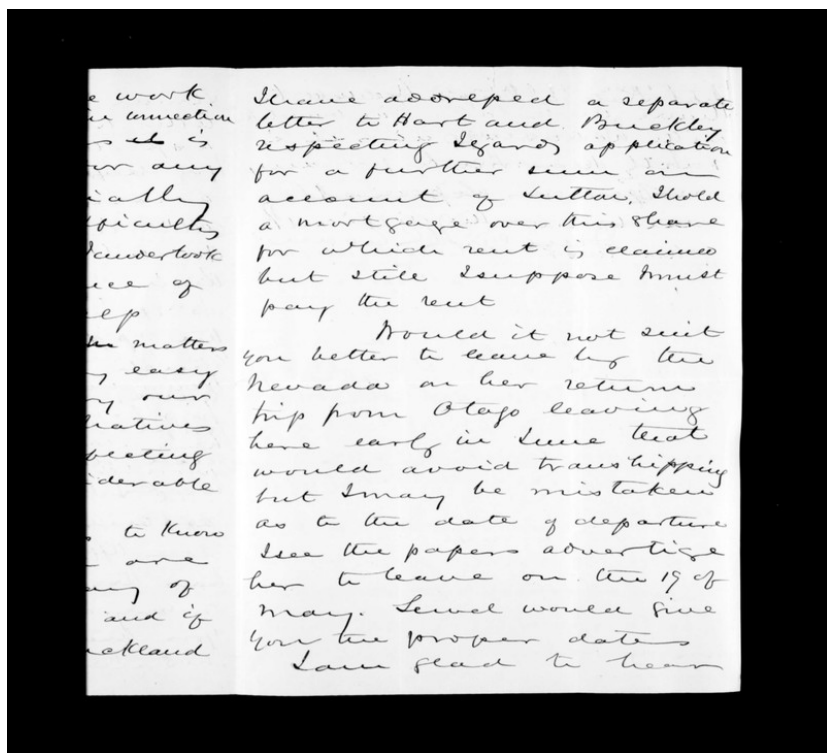 e work
in connection
rs it is
or any
ially
fficulty
I undertook
nce of
elp
the matters
y easy
by our
natives
pecting
iderable
s to know
are
any of
and if
uckland
I have addressed a separate
letter to Hart and Buckley
respecting application
for a further sum on
account of Sutton, I hold
a mortgage over this share
for which rent is claimed
but still I suppose I must
pay the rent
Would it not suit
you better to leave by the
Nevada on her return
trip from Otago leaving
here early in June that
would avoid transhipping
but I may be mistaken
as to the date of departure
I see the papers advertise
her to leave on the 19 of
May. would give
you the proper dates
I am glad to hear